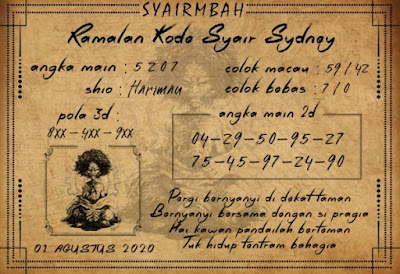 SYAIRMBAH
Ramalan Kode Syair Sydney
angka main : 5207
colok macau : 59/42
shio : HARIMAU
colok bebas : 7/0
pola 3d :
8xx - 4xx - 9xx
angka main 2d
04-29-50-95-27
75-45-97-24-90
Pergi bernyanyi di dekat taman
Bernyanyi bersama dengan si pragia
Hai kawan pandailah berteman
Tuk hidup tentram bahagia
01 AGUSTUS 2020